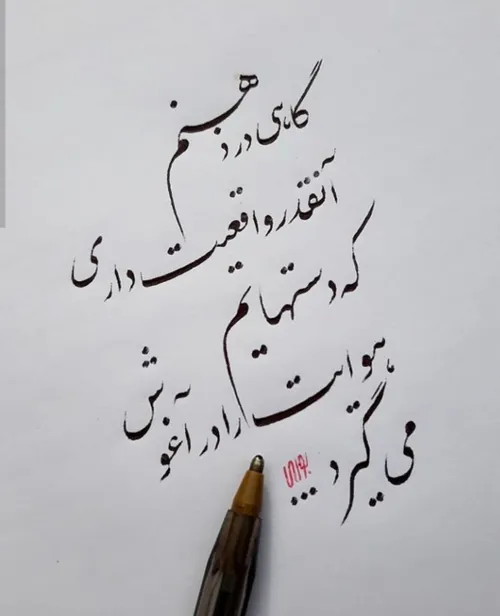 گاهی در ذهنم
آنقدر واقعیت داری
که دستهایم
هوایت را در آغوش
می گیرد ...